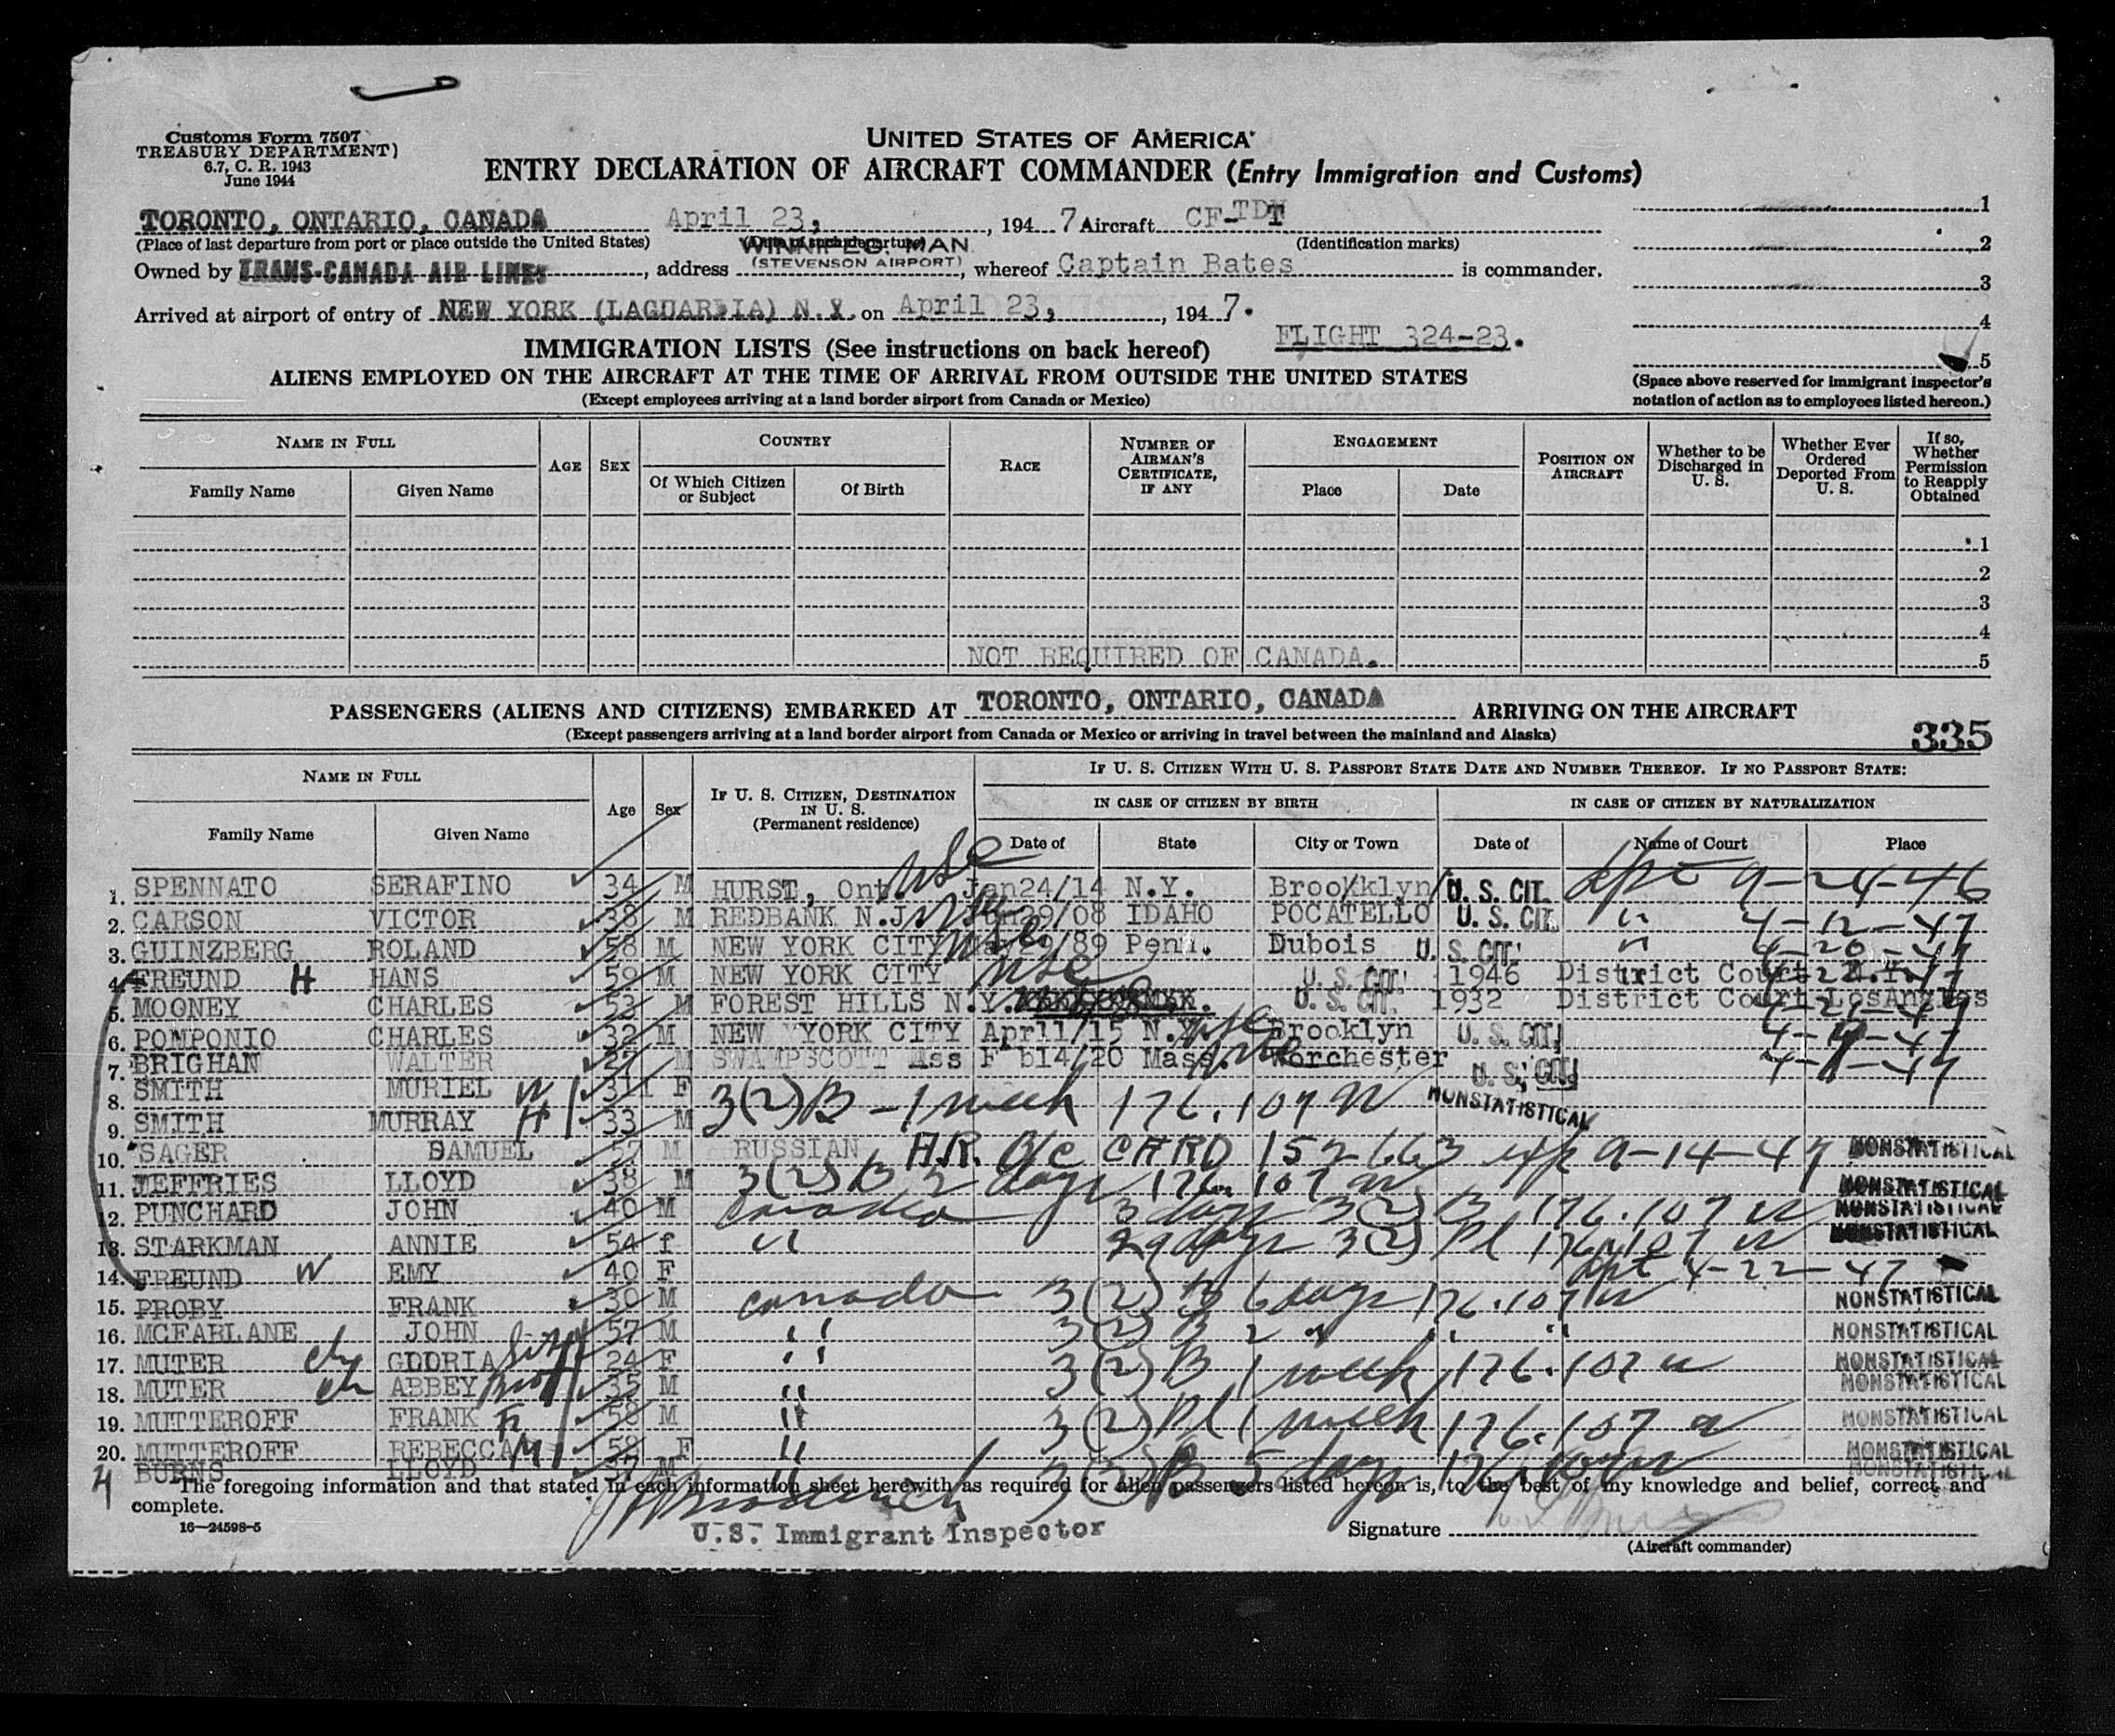 Customs Form 7507
TREASURY DEPARTMENT)
6.7, C. R. 1943
June 1944
UNITED STATES OF AMERICA
ENTRY DECLARATION OF AIRCRAFT COMMANDER (Entry Immigration and Customs)
TORONTO, ONTARIO, CANADA April 23, , 194 7 Aircraft CF-TDT 1
(Place of last departure from port or place outside the United States) (Date of such departure) (Identification marks)
WINNIPEG, MAN. 2
Owned by TRANS-CANADA AIR LINES, address (STEVENSON AIRPORT), whereof Captain Bates is commander. 3
Arrived at airport of entry of NEW YORK (LAGUARDIA) N.Y. on April 23, , 194 7. 4
FLIGHT 324-23. 5
IMMIGRATION LISTS (See instructions on back hereof)
ALIENS EMPLOYED ON THE AIRCRAFT AT THE TIME OF ARRIVAL FROM OUTSIDE THE UNITED STATES
(Except employees arriving at a land border airport from Canada or Mexico)
(Space above reserved for immigrant inspector's
notation of action as to employees listed hereon.)
NAME IN FULL AGE SEX COUNTRY RACE NUMBER OF AIRMAN'S CERTIFICATE, IF ANY ENGAGEMENT POSITION ON AIRCRAFT Whether to be Discharged in U. S. Whether Ever Ordered Deported From U. S. If so, Whether Permission to Reapply Obtained
Family Name Given Name Of Which Citizen or Subject Of Birth Place Date
1
2
3
4
NOT REQUIRED OF CANADA. 5
PASSENGERS (ALIENS AND CITIZENS) EMBARKED AT TORONTO, ONTARIO, CANADA ARRIVING ON THE AIRCRAFT
(Except passengers arriving at a land border airport from Canada or Mexico or arriving in travel between the mainland and Alaska)
335
NAME IN FULL Age Sex IF U. S. CITIZEN, DESTINATION IN U. S. (Permanent residence) IF U. S. CITIZEN WITH U. S. PASSPORT STATE DATE AND NUMBER THEREOF. IF NO PASSPORT STATE:
IN CASE OF CITIZEN BY BIRTH IN CASE OF CITIZEN BY NATURALIZATION
Family Name Given Name Date of State City or Town Date of Name of Court Place
1. SPENNATO SERAFINO 34 M HURST, Ont. Jan24/14 N.Y. Brooklyn U. S. CIT. 9-24-46
2. CARSON VICTOR 38 M REDBANK N.J. 29/08 IDAHO POCATELLO U. S. CIT. " 4-12-47
3. GUINZBERG ROLAND 58 M NEW YORK CITY /89 Penn. Dubois U. S. CIT. " 4-20-47
4. FREUND H HANS 59 M NEW YORK CITY U. S. CIT. 1946 District Court N.Y.
5. MOONEY CHARLES 53 M FOREST HILLS N.Y. U. S. CIT. 1932 District Court LosAngles
6. POMPONIO CHARLES 32 M NEW YORK CITY Apr11/15 N.Y. Brooklyn U. S. CIT.
7. BRIGHAN WALTER 27 M SWAMPSCOTT Ass F b14/20 Mass. Worchester U. S. CIT.
8. SMITH MURIEL W 31 F 3(2)B - 1 week 176.107 NONSTATISTICAL
9. SMITH MURRAY H 33 M
10. SAGER SAMUEL 57 M RUSSIAN A.R. B/C CARD 152663 exp 9-14-47 NONSTATISTICAL
11. JEFFRIES LLOYD 38 M 3(2)B 2 days 176.107 NONSTATISTICAL
12. PUNCHARD JOHN 40 M Canada 3 days 3(2) B 176.107 NONSTATISTICAL
13. STARKMAN ANNIE 54 f " 29 days 3(2) Pl 176.107 NONSTATISTICAL
14. FREUND W EMY 40 F 4-22-47
15. PROBY FRANK 30 M Canada 3(2) B 6 days 176.107 NONSTATISTICAL
16. MCFARLANE JOHN 57 M " 3(2) B 2 " " " NONSTATISTICAL
17. MUTER GLORIA 24 F " 3(2) B 1 week 176.107 NONSTATISTICAL
18. MUTER ABBEY 35 M " NONSTATISTICAL
19. MUTTEROFF FRANK 58 M " 3(2) Pl 1 week 176.107 NONSTATISTICAL
20. MUTTEROFF REBECCA M 58 F " NONSTATISTICAL
BURNS LLOYD 37 M " 3(2) B 5 days NONSTATISTICAL
The foregoing information and that stated in each information sheet herewith as required for alien passengers listed hereon is, to the best of my knowledge and belief, correct and
complete.
16—24598-5
U.S. Immigrant Inspector
Signature
(Aircraft commander)